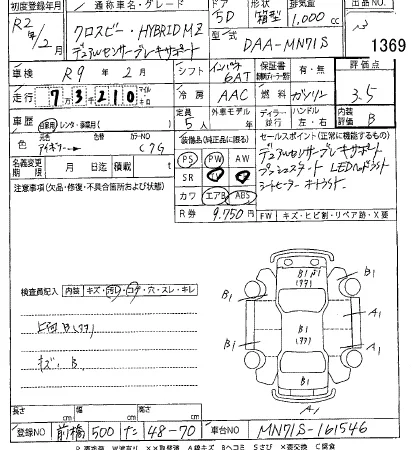 初度登録年月 通称車名・グレード ドア 形状 排気量 出品NO
R2年/2月 クロスビー・HYBRID MZ 5D 箱型 1,000cc
デュアルセンサーブレーキサポート 型式 DAA-MN71S 1369
車検 R9年2月 シフト インパネ 6AT 保証書 有・無 評価点
走行 7万3千210 マイル キロ 冷房 AAC 燃料 ガソリン 3.5
車歴 自家用・レンタ・ 定員 5人 外車モデル ディーラー 並行 ハンドル 左・右 内装評価 B
色 アイボリー カラーNO C7G 装備品(純正品に限る) セールスポイント(正常に機能するもの)
PS PW AW デュアルセンサーブレーキサポート
名義変更期限 月 日迄 積載 t SR プッシュスタート LEDヘッドライト
注意事項(欠品・修復・不具合箇所および状態) カワ エアB ABS シートヒーター オートライト
R券 9,750円 FW キズ・ヒビ割・リペア跡・X要
検査員記入 内装 キズ・汚レ・コゲ・穴・スレ・キレ
キズ、B
B1
B1
B1
A1
B1
A1
長さ cm 幅 cm 高さ cm
登録NO 前橋 500 た 48-70 車台NO MN71S-161546